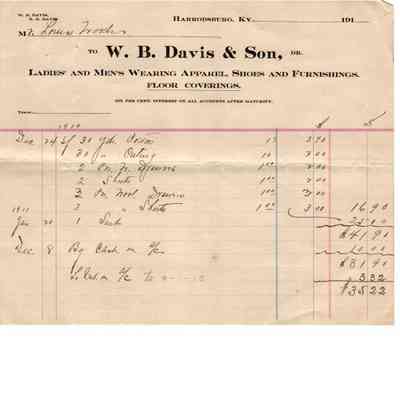 W. B. DAVIS,
HARRODSBURG, KY. 191
M
TO W. B. DAVIS & SON, DR.
LADIES' AND MEN'S WEARING APPAREL, SHOES AND FURNISHINGS.
FLOOR COVERINGS.
SIX PER CENT. INTEREST ON ALL ACCOUNTS AFTER MATURITY.
Dec 24 30 yds 3 00
30 " Outing 10 3 00
2 Drawers 1 00 2 00
2 Shirts 1 00 2 00
3 Wool Drawers 1 00 3 00
1911 3 " Shirts 1 00 3 00 16 90
Jan 20 1 Suit 25 00
$41 90
Dec 8 By Cash on a/c 10 00
$31 90
Int on a/c to 3 32
$35 22